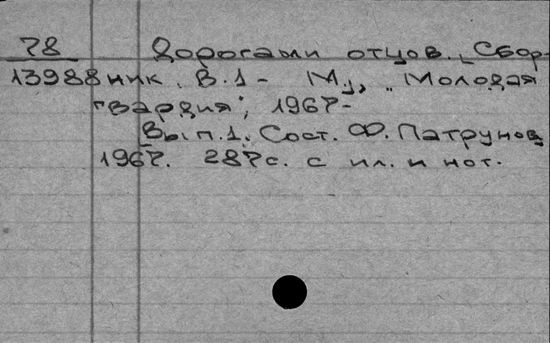 78 Дорогами отцов. [Сбор-
13988 ник. В.1- М., „Молодая
гвардия", 1967-
Вып.1. Сост. Ф. Патрунов
1967. 287с. с ил. и нот.